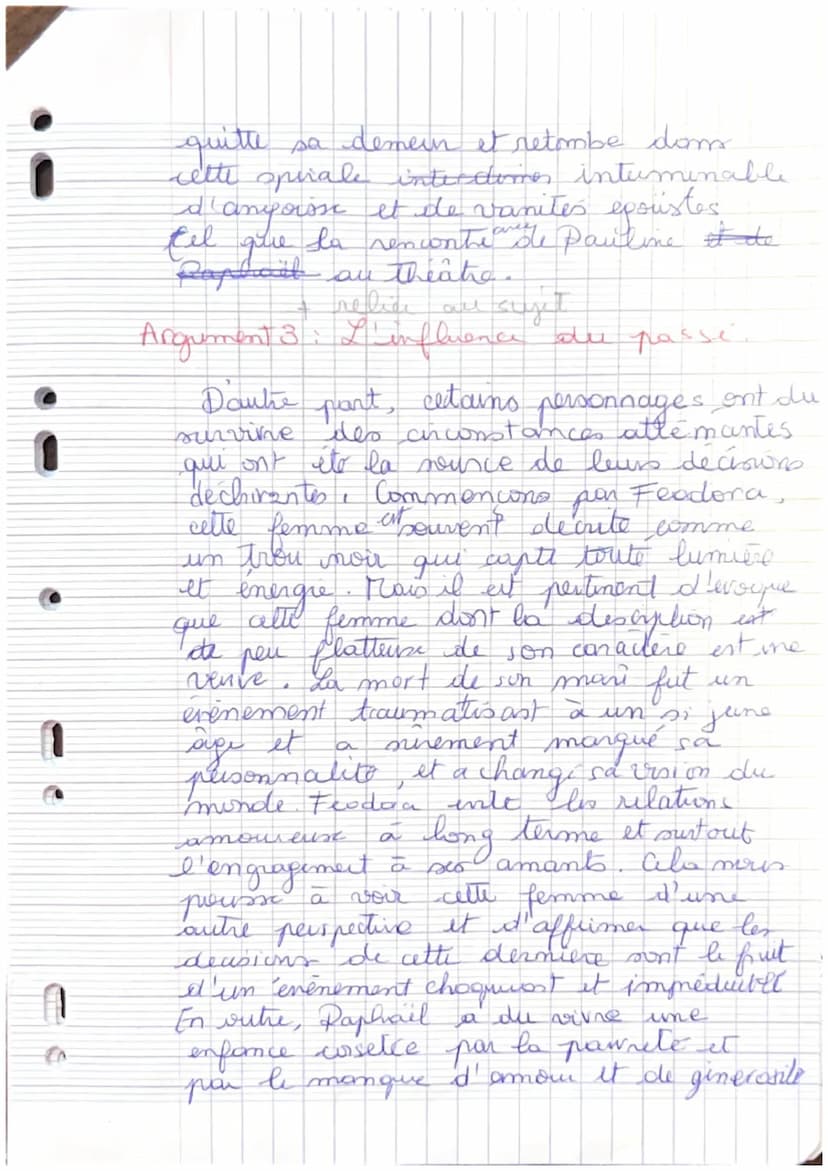 quitte sa demeur et retombe dans
cette spirale interdomes interminable
d'angoisse et de vanités egoïstes
tel que la rencontre avec de Pauline et de
Raphaël au théâtre.
+ relier au sujet
Argument 3 : L'influence du passé.
D'autre part, certains personnages ont du
survivre des circonstances attémantes
qui ont été la source de leurs décisions
déchirantes. Commençons par Feodora,
cette femme est souvent décrite comme
un trou noir qui capte toute lumière
et énergie. Mais il est pertinent d'évoque
que cette femme dont la description est
de peu flatteuse de son caractère est une
veuve. La mort de son mari fut un
évènement traumatisant à un si jeune
âge et a sûrement marqué sa
personnalité, et a changé sa vision du
monde. Feodora évite les relations
amoureuse à long terme et surtout
l'engragement à ses amants. Cela nous
pousse à voir cette femme d'une
autre perspective et d'affirmer que les
decisions de cette dernière sont le fruit
d'un évènement choquant et
En outre, Raphaël a du vivre une
enfance par la pauvreté et
par le manque d'amour et de génerosité